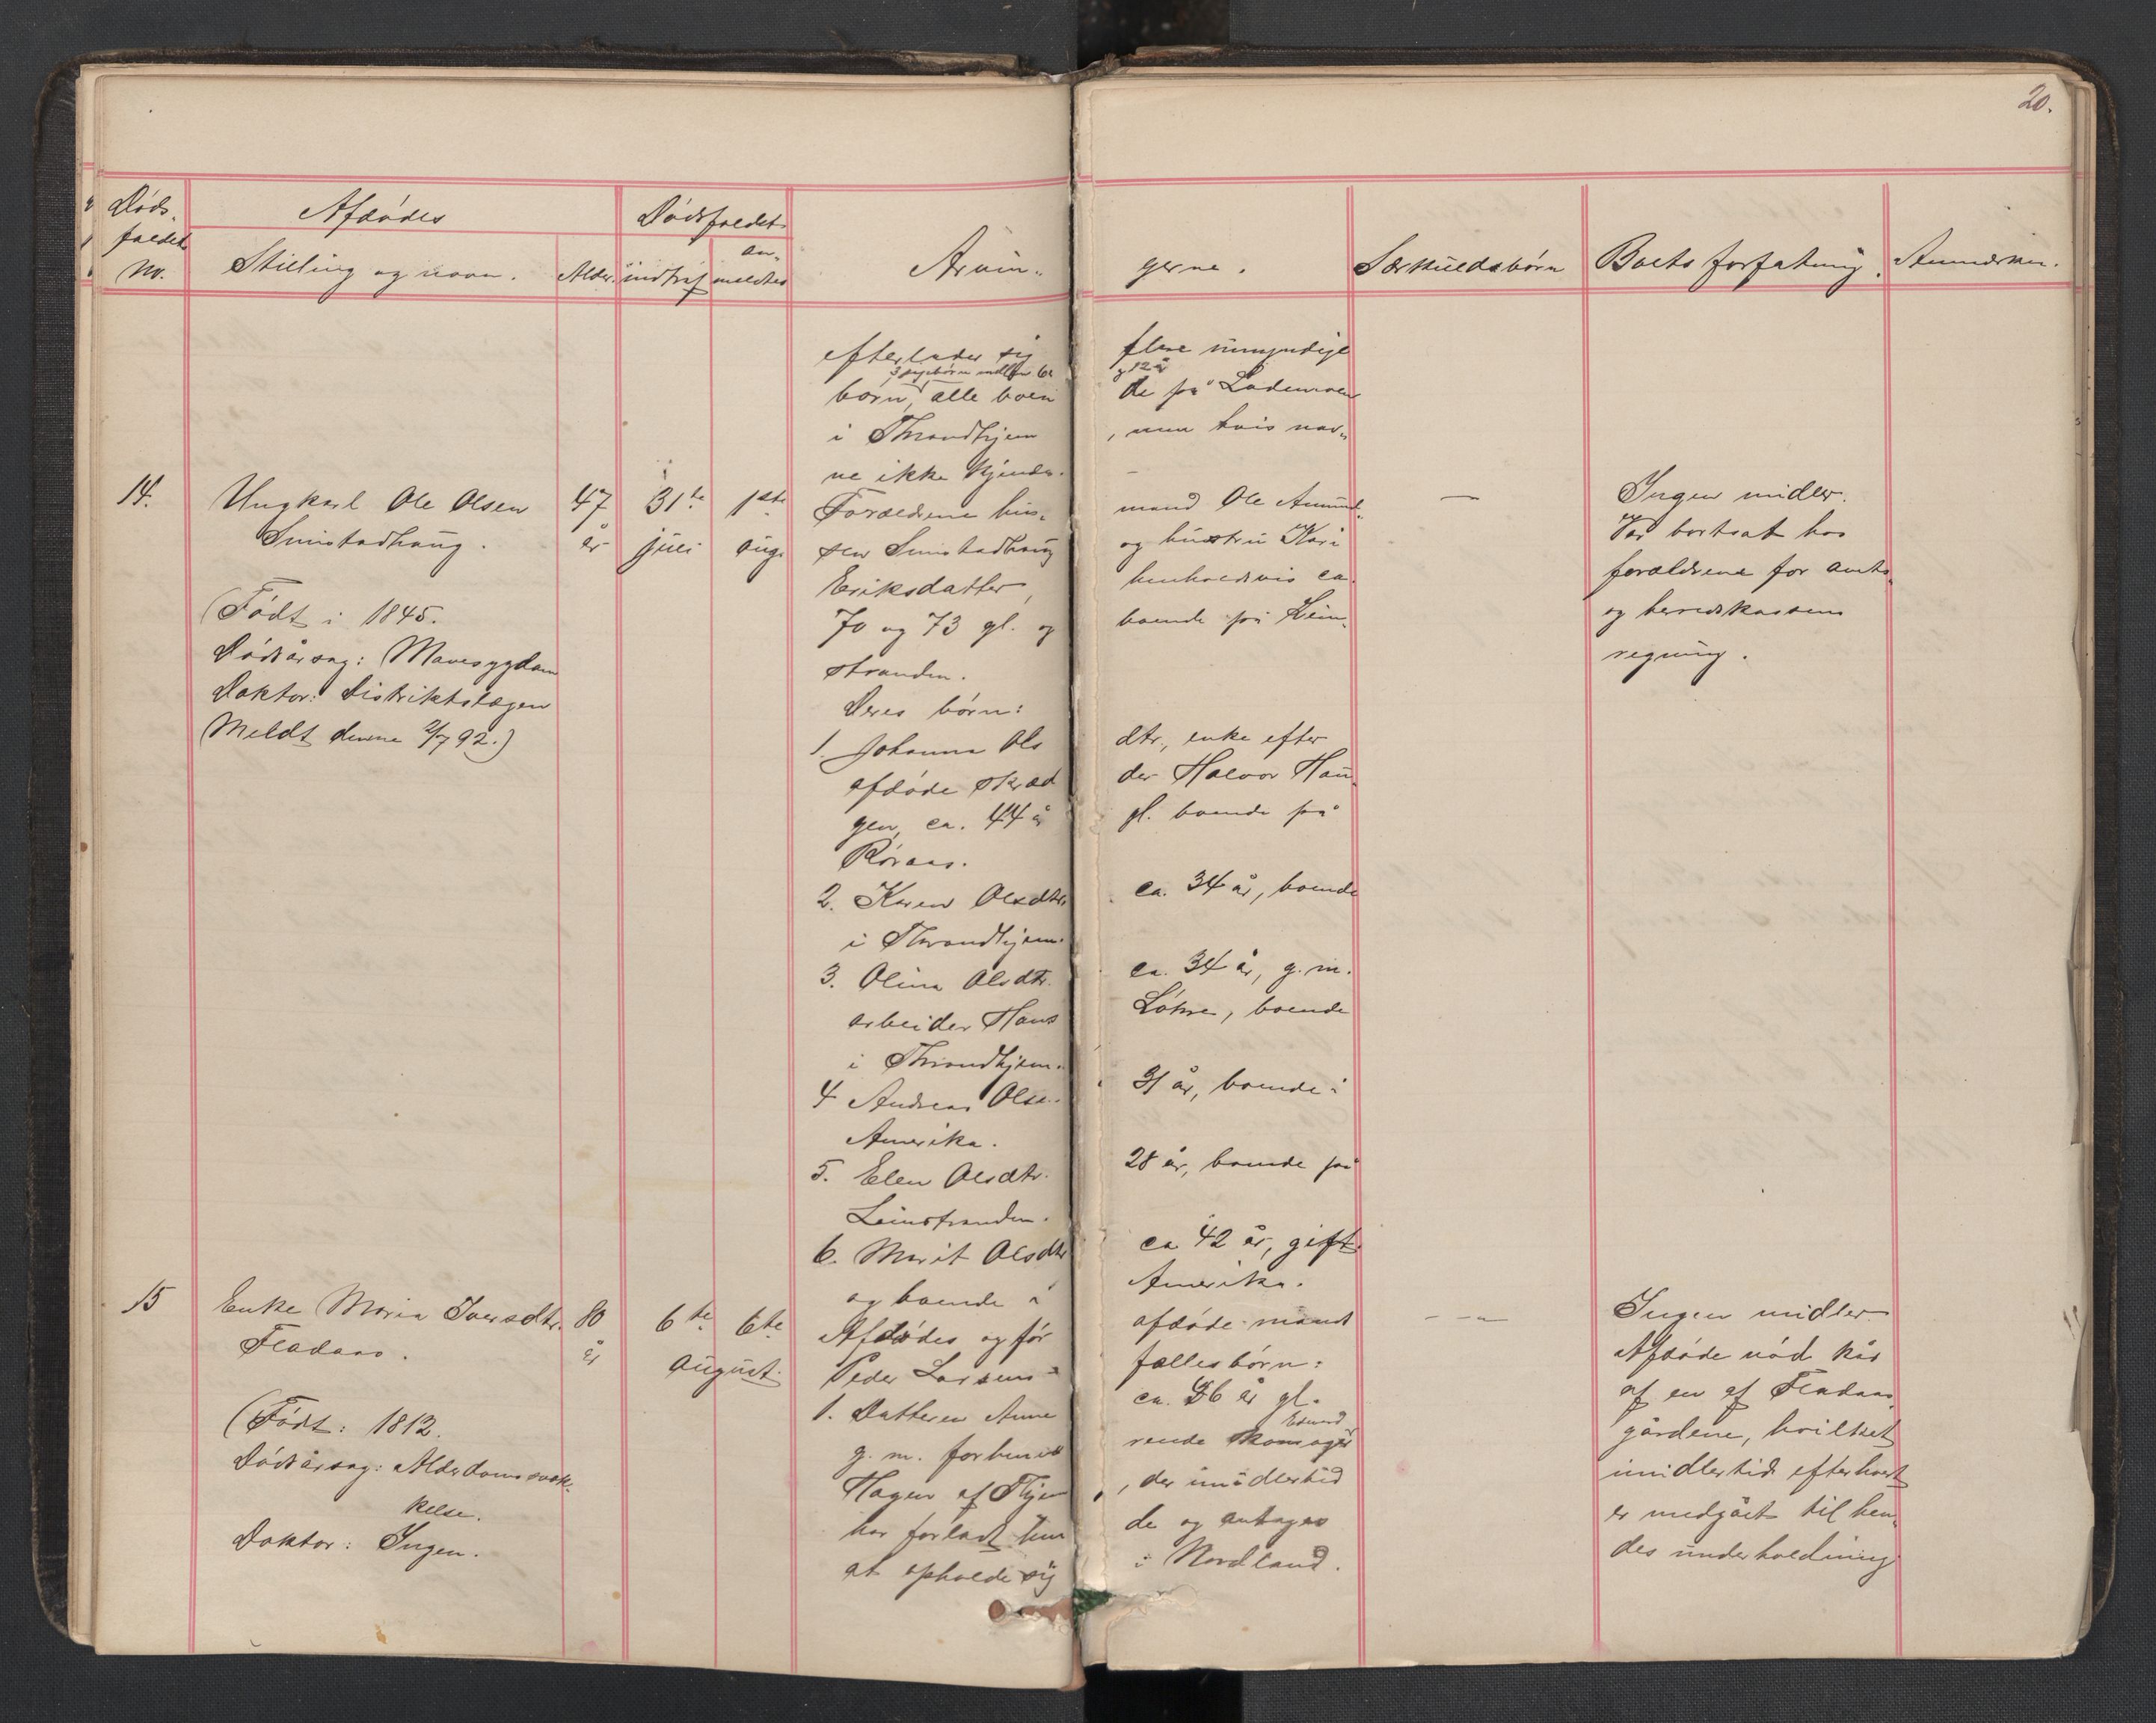 20.
Døds-
faldets
No.
Afdødes
Stilling og navn.
Alder.
Dødsfaldet
indtraf
an-
meldtes
Arvin-
gerne.
Særkuldsbørn
Boets forfatning.
Anmærkn.
efterlader sig flere umyndige
3 pigebørn mellem 6 og 12 år
børn, alle boende på Lademoen
i Throndhjem, men hvis nav-
ne ikke kjendes.
14.
Ungkarl Ole Olsen
Simstadhaug.
47
år
31te
juli
1ste
aug.
(Født i 1845.
Dødsårsag: Mavesygdom
Doktor: Distriktslægen
Meldt denne 2/7 92.)
Forældrene hus- mand Ole Amund-
sen Simstadhaug og hustru Kari
Eriksdatter, henholdsvis ca.
70 og 73 gl. og boende på Lein-
stranden.
Deres børn:
1. Johanna Ols dtr., enke efter
afdøde skræd der Halvor Hau-
gen, ca. 44 år gl. boende på
Røraas.
2. Karen Olsdtr. ca. 34 år, boende
i Throndhjem.
3. Olina Olsdtr. ca. 34 år, g. m.
arbeider Hans Løhre, boende
i Throndhjem.
4 Andreas Olsen 31 år, boende i
Amerika.
5. Elen Olsdtr. 28 år, boende på
Leinstranden.
6. Marit Olsdtr ca 42 år, gift
og boende i Amerika.
—
Ingen midler.
Var bortsat hos
forældrene for amts-
og herredskassens
regning.
15
Enke Maria Iversdtr.
Fladaas.
80
år
6te
6te
august.
(Født: 1812.
Dødsårsag: Alderdomssvæk-
kelse.
Doktor: Ingen.
Afdødes og før afdøde mand
Peder Larsens fællesbørn:
1. Datteren Anne ca. 56 år gl.
Edvard
g. m. forhenværende skomager
Hagen af Thjem, der imidlertid
har forladt hende og antages
at opholde sig i Nordland.
— — —
Ingen midler
Afdøde nød kår
af en af Fladaas-
gårdene, hvilket
imidlertid efterhvert
er medgået til hen-
des underholdning